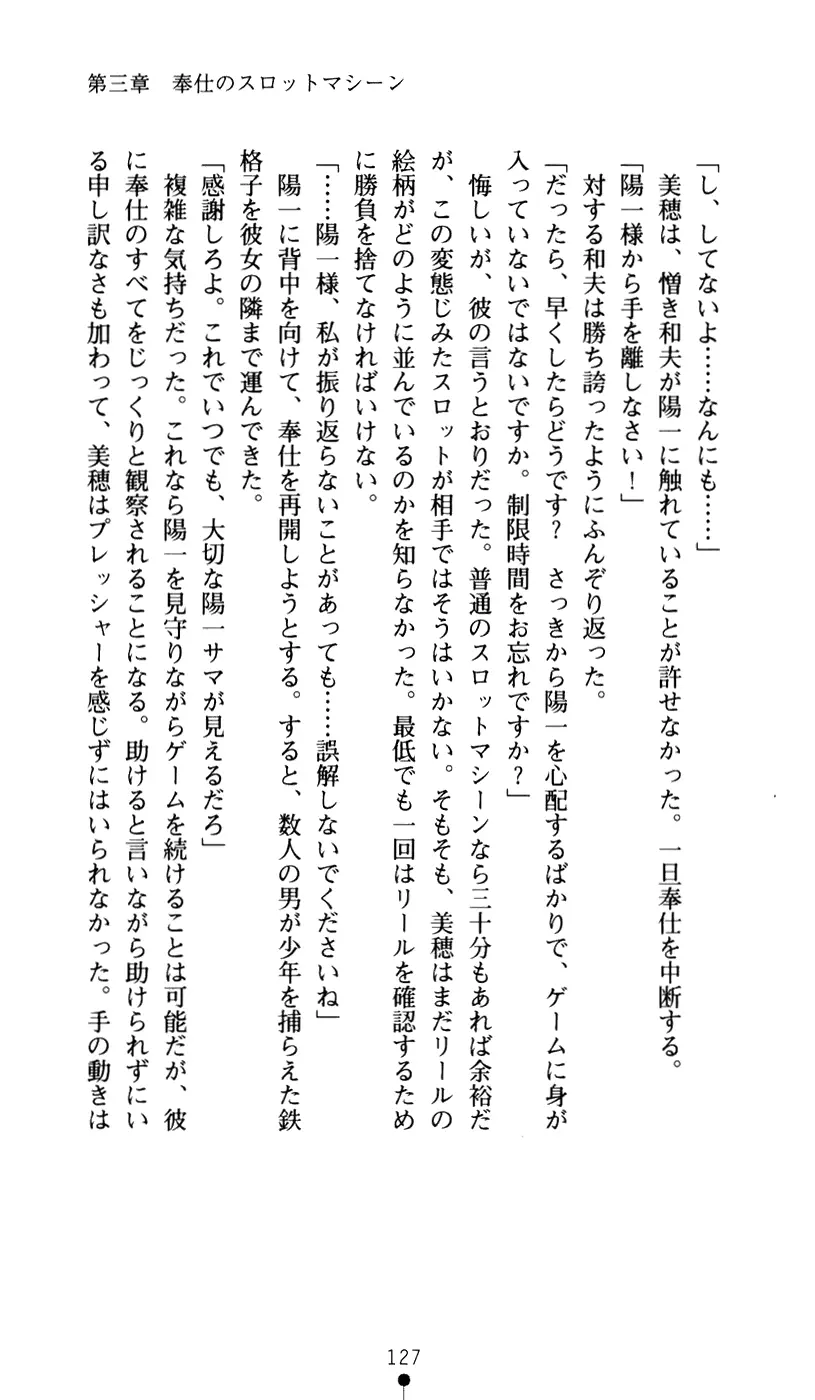 第三章　奉仕のスロットマシーン
「し、してないよ……なんにも……」
　美穂は、憎き和夫が陽一に触れていることが許せなかった。一旦奉仕を中断する。
「陽一様から手を離しなさい！」
　対する和夫は勝ち誇ったようにふんぞり返った。
「だったら、早くしたらどうです？　さっきから陽一を心配するばかりで、ゲームに身が
入っていないではないですか。制限時間をお忘れですか？」
　悔しいが、彼の言うとおりだった。普通のスロットマシーンなら三十分もあれば余裕だ
が、この変態じみたスロットが相手ではそうはいかない。そもそも、美穂はまだリールの
絵柄がどのように並んでいるのかを知らなかった。最低でも一回はリールを確認するため
に勝負を捨てなければいけない。
「……陽一様、私が振り返らないことがあっても……誤解しないでくださいね」
　陽一に背中を向けて、奉仕を再開しようとする。すると、数人の男が少年を捕らえた鉄
格子を彼女の隣まで運んできた。
「感謝しろよ。これでいつでも、大切な陽一サマが見えるだろ」
　複雑な気持ちだった。これなら陽一を見守りながらゲームを続けることは可能だが、彼
に奉仕のすべてをじっくりと観察されることになる。助けると言いながら助けられずにい
る申し訳なさも加わって、美穂はプレッシャーを感じずにはいられなかった。手の動きは
127